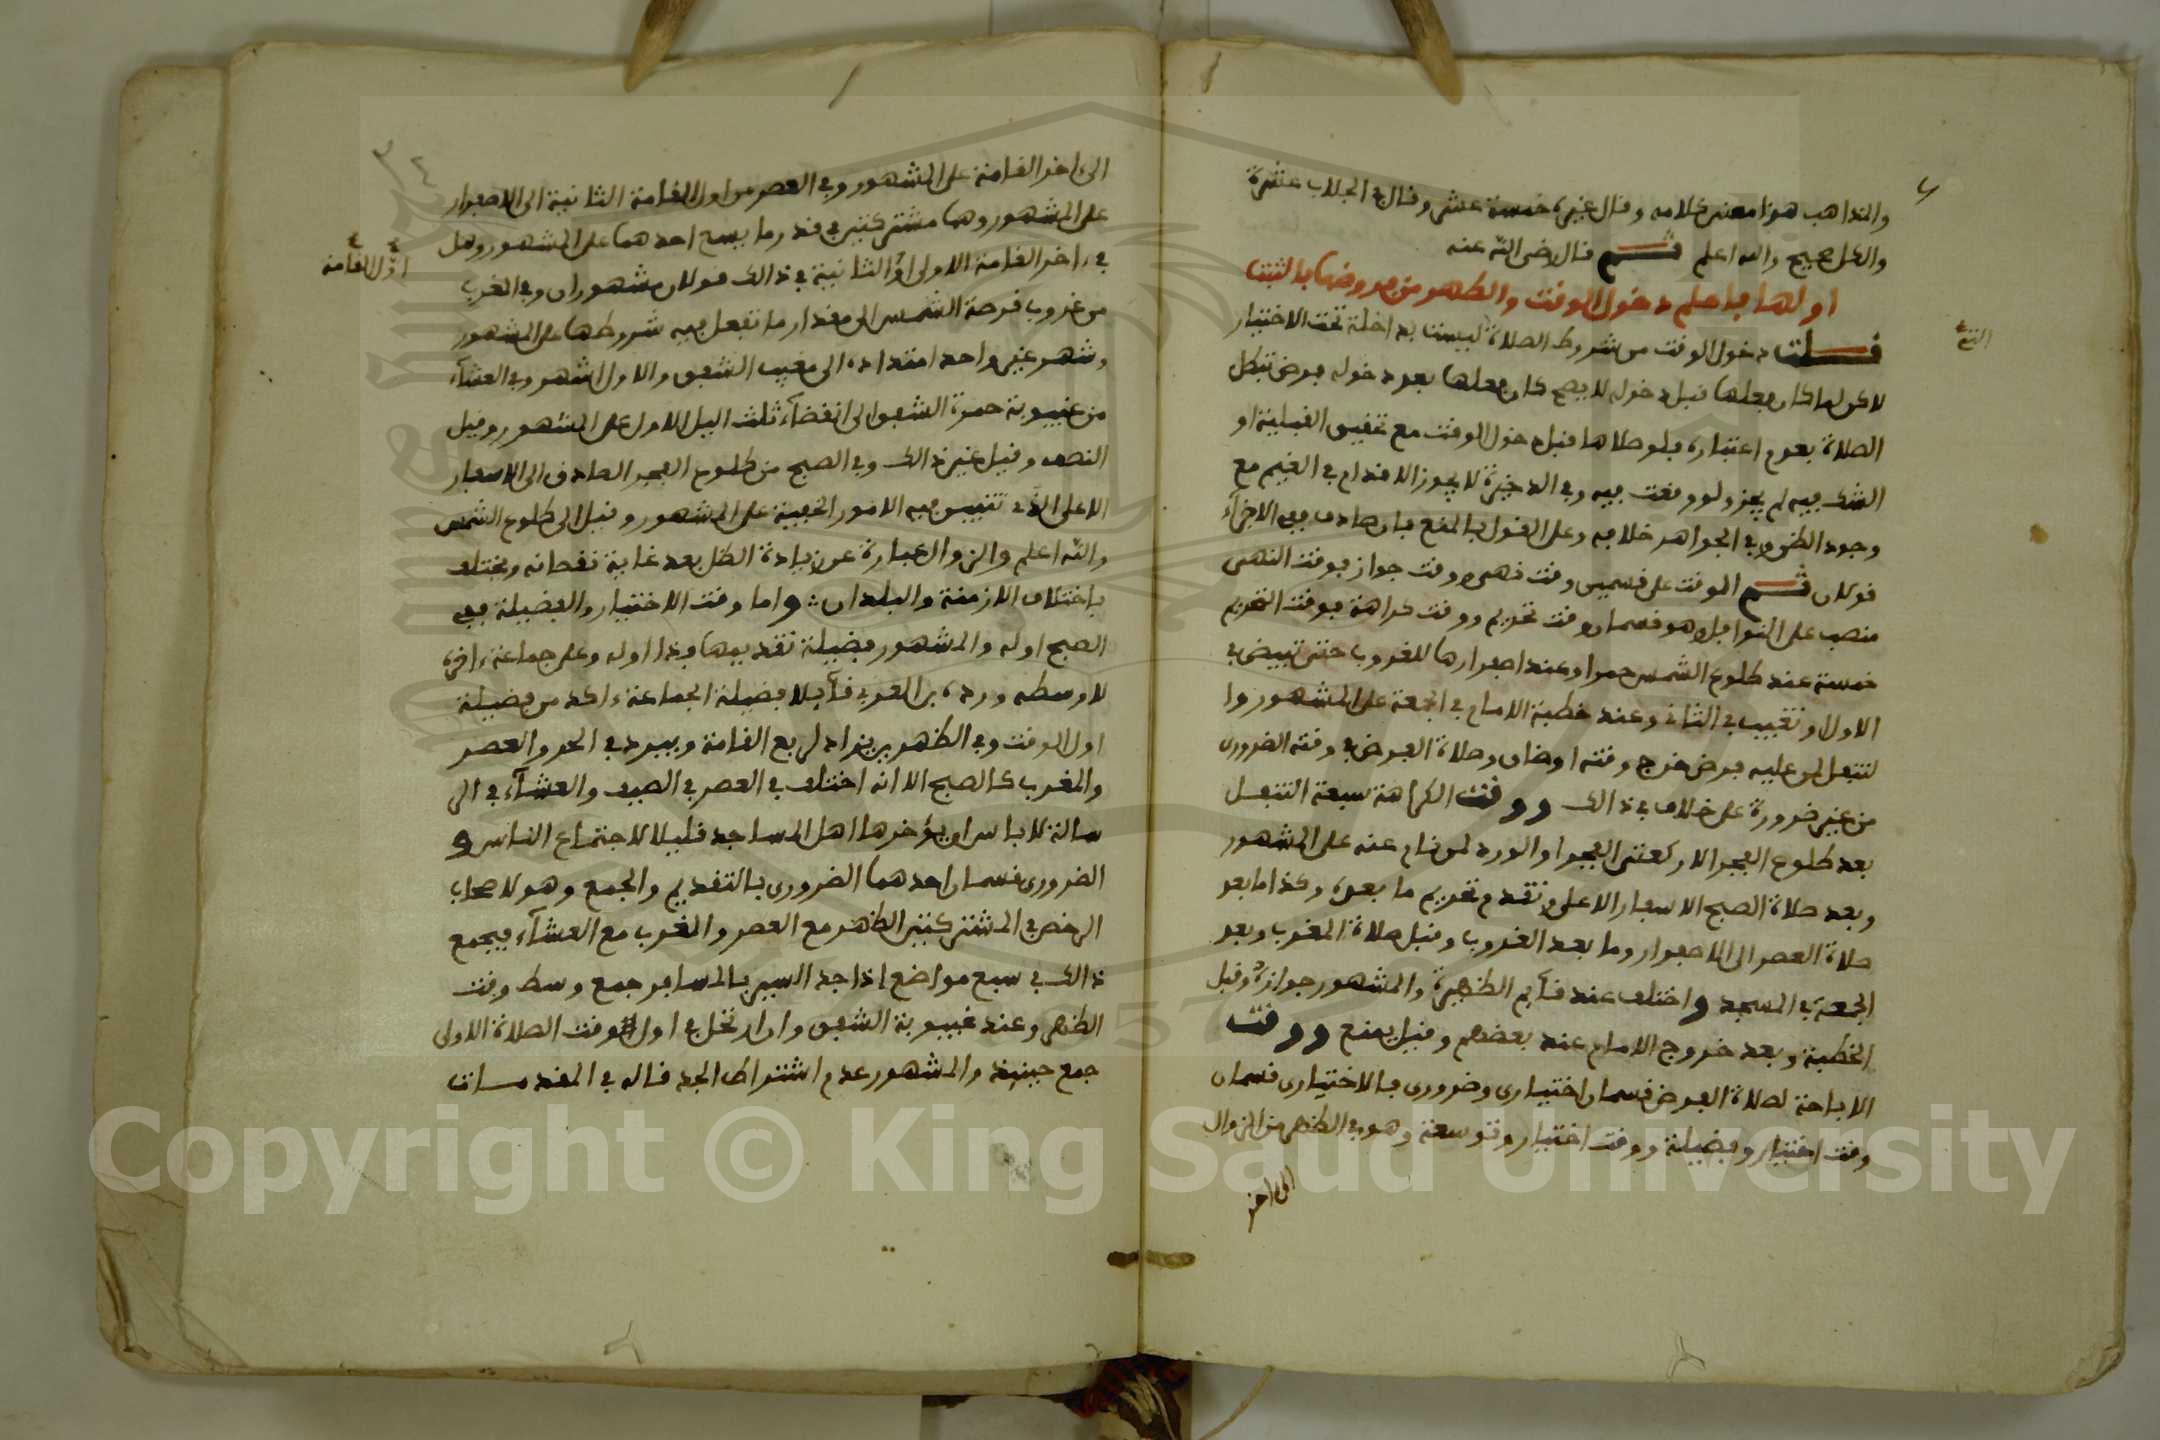 والمذاهب هذا معنى كلامه وقال غيره خمسة عشر وقال في الجلاب عشرة
والكل صحيح والله اعلم ثم قال رضي الله عنه
اولها فاعلم دخول الوقت والطهر من
قلت دخول الوقت من شروط الصلاة ليست بداخلة تحت الاختيار
لاكن لما كان فعلها قبل دخوله لا يصح كان فعلها بعد دخوله فرض تبطل
الصلاة بعدم اعتباره فلو صلاها قبل دخول الوقت مع تحقيق القبلية او
الشك فيه لم يجز ولو وقعت فيه وفي الذخيرة لا يجوز الاقدام في الغيم مع
وجود الظن وفي الجواهر خلافه وعلى القول بالمنع فان صادف ففي الاجزآء
قولان ثم الوقت على قسمين وقت نهي ووقت جواز فوقت النهي
منصب على النوافل وهو قسمان وقت تحريم ووقت كراهة فوقت التحريم
خمسة عند طلوع الشمس حمرا وعند اصفرارها للغروب حتى تبيض في
الاول وتغيب في الثاني وعند خطبة الامام في الجمعة على المشهور وا
لتنفل لمن عليه فرض خرج وقته او ضاق وصلاة الفرض في وقته الضروري
من غير ضرورة على خلاف في ذالك ووقت الكراهة سبعة التنفل
بعد طلوع الفجر الا ركعتي الفجر او الورد لمن نام عنه على المشهور
وبعد صلاة الصبح الا سفار الاعلى وتقدم تحريم ما بعده وكذا ما بعد
صلاة العصر الى الاصفرار وما بعد الغروب وقبل صلاة المغرب وبعد
الجمعة في المسجد واختلف عند قآيم الظهيرة والمشهور جوازه وقبل
الخطبة وبعد خروج الامام عند بعضهم وقيل يمنع ووقت
الاباحة لصلاة الفرض قسمان اختياري وضروري فالاختياري قسمان
وقت اختيار وفضيلة ووقت اختيار وتوسعة وهو في الظهر من الزوال
الى اخر
الى اخر القامة على المشهور وفي العصر من اول القامة الثانية الى الاصفرار
على المشهور وهما مشتركتين في قدر ما يسع احدهما على المشهور وهل
في اخر القامة الاولى او الثانية في ذالك قولان مشهوران وفي المغرب
اول القامة
من غروب قرصة الشمس الى مقدار ما تفعل فيه شروطها على المشهور
وشهر غير واحد امتداده الى مغيب الشفق والاول اشهر وفي العشآء
من غيبوبة حمرة الشفق الى انقضآء ثلث اليل الاول على المشهور وقيل
النصف وقيل غير ذالك وفي الصبح من طلوع الفجر الصادق الى الاسفار
الاعلى الذي تتبين فيه الامور الخفية على المشهور وقيل الى طلوع الشمس
والله اعلم والزوال عبارة عن زيادة الظل بعد غاية نقصانه ويختلف
باختلاف الازمنة والبلدان واما وقت الاختيار والفضيلة ففي
الصبح اوله والمشهور فضيلة تقديمها فذا اوله وعلى جماعة اخرى
لاوسطه ورده بن العربي قآيلا فضيلة الجماعة اكد من فضيلة
اول الوقت وفي الظهر يزاد لربع القامة ويبرد في الحر والعصر
والمغرب كالصبح الا انه اختلف في العصر في الصيف والعشآء في الر
سالة لا باس ان يؤخرها اهل المساجد قليلا لاجتماع الناس و
الضروري قسمان احدهما الضروري بالتقديم والجمع وهو لاصحاب
الرخص في المشتركتين الظهر مع العصر والمغرب مع العشآء فيجمع
ذالك في سبع مواضع اذا جد السير بالمسافر جمع وسط وقت
الظهر وعند غيبوبة الشفق وان ارتحل في اول وقت الصلاة الاولى
جمع حينيذ والمشهور عدم اشتراط الجد قاله في المقدمات